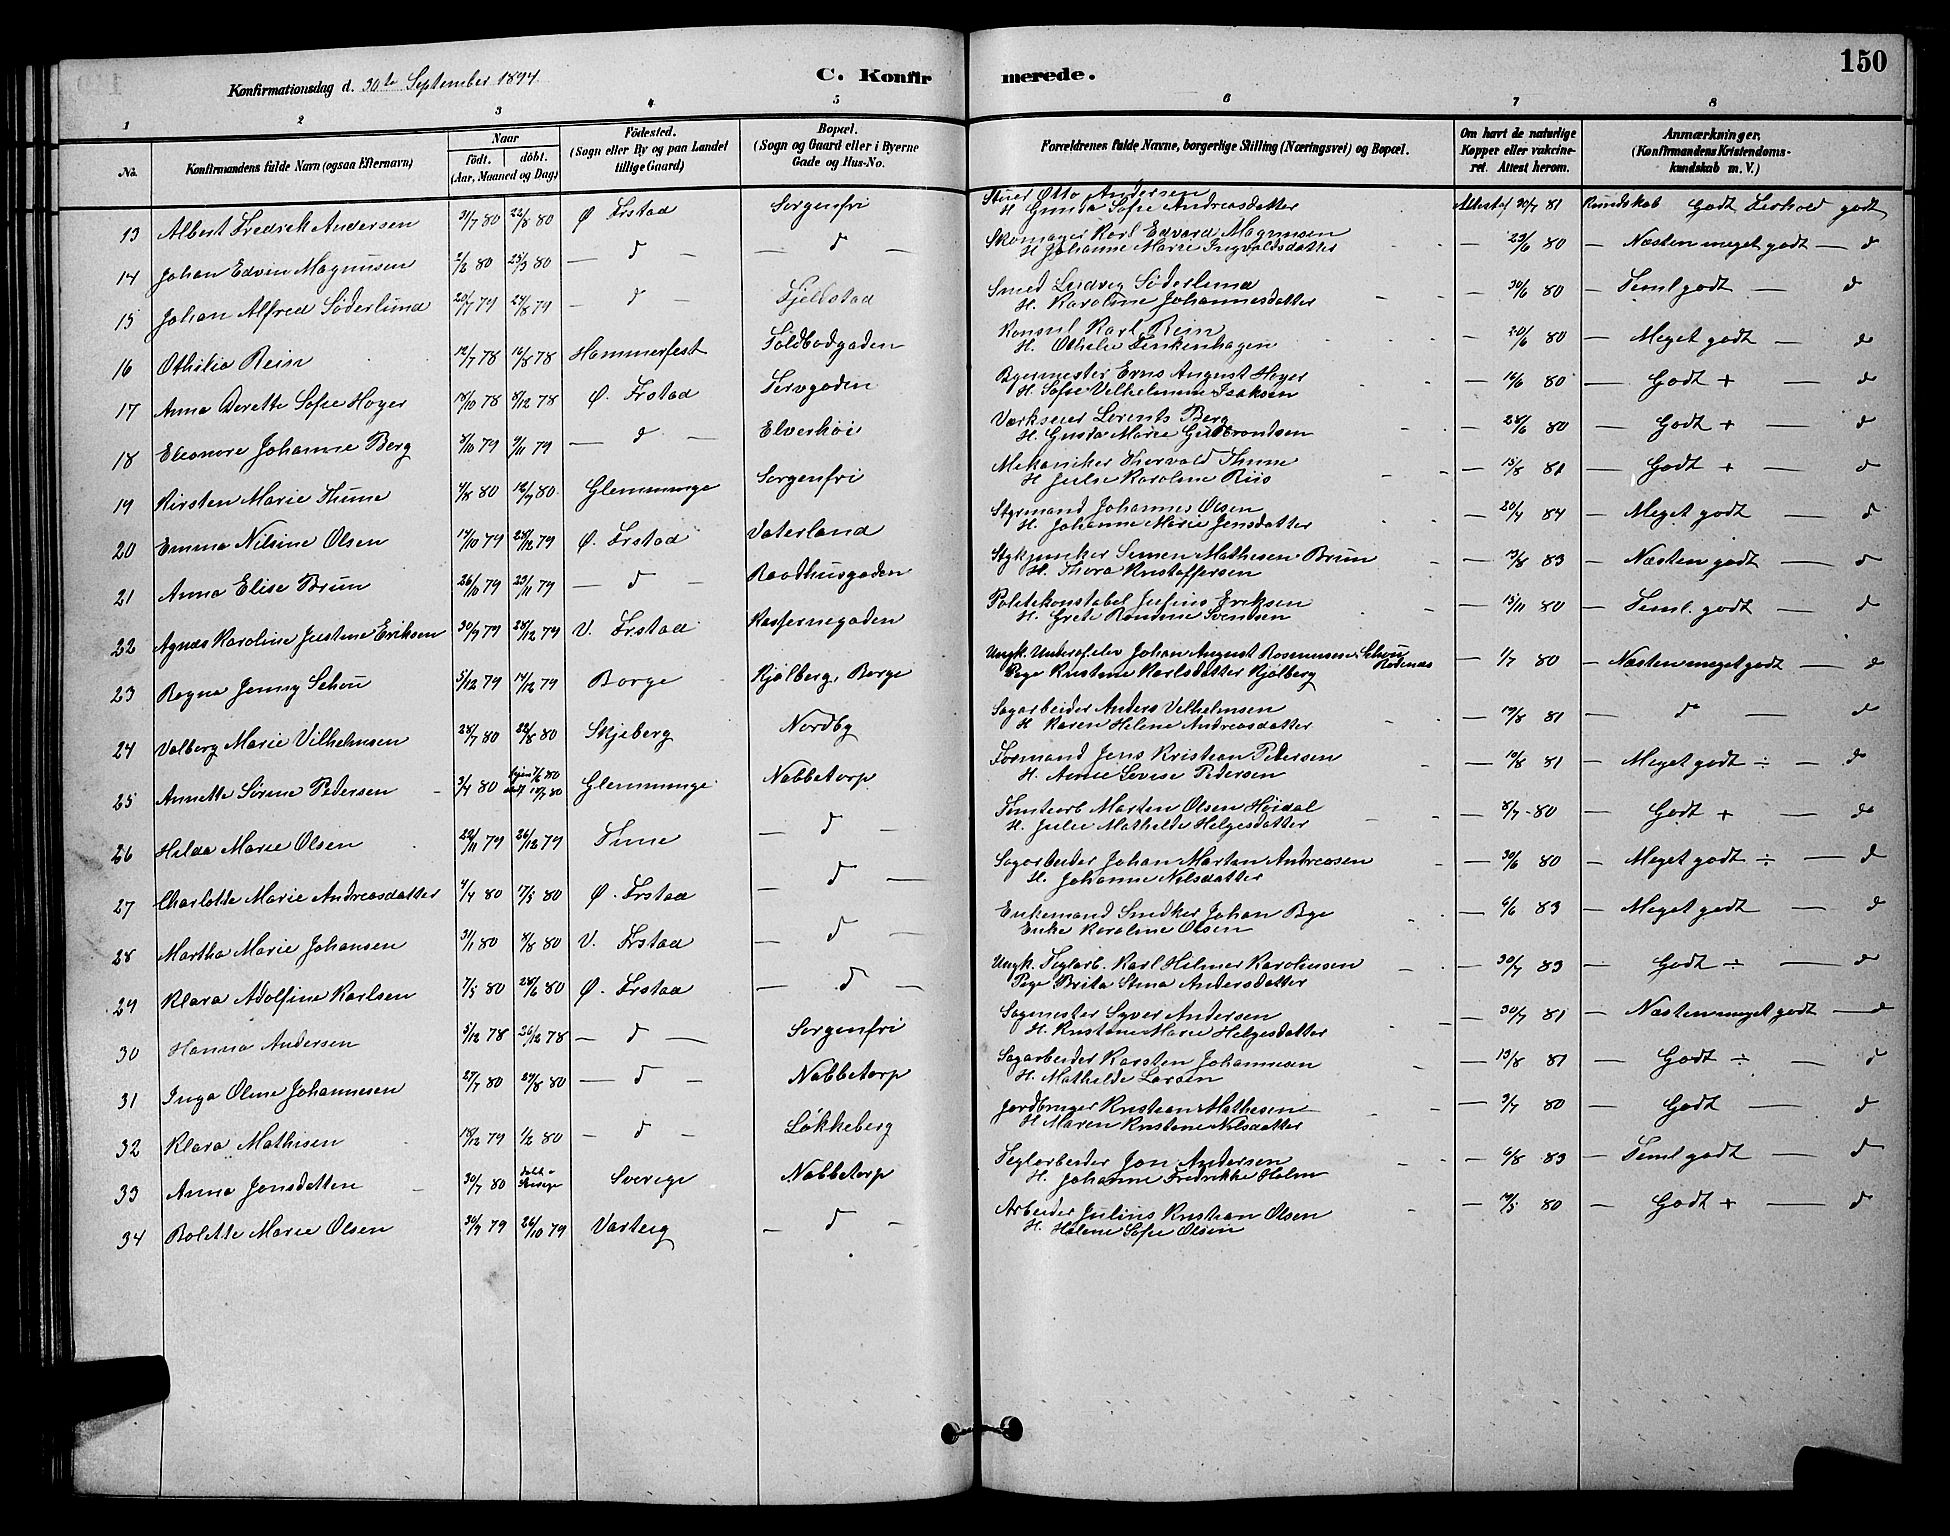 150
Konfirmationsdag d. 30te September 1894.
C. Konfirmerede.
1 2 3 4 5 6 7 8
No. Konfirmandens fulde Navn (ogsaa Efternavn) Naar født. døbt. (Aar, Maaned og Dag) Fødested. (Sogn eller By og paa Landet tillige Gaard) Bopæl. (Sogn og Gaard eller i Byerne Gade og Hus-No. Forældrenes fulde Navne, borgerlige Stilling (Næringsvei) og Bopæl. Om havt de naturlige Kopper eller vakcineret. Attest herom. Anmærkninger. (Konfirmandens Kristendomskundskab m. V.)
13 Albert Fredrik Andersen 31/7 80 22/8 80 Ø. Frstad Sorgenfri Stuer Otto Andersen Attest af 30/7 81 Kundskab Godt Forhold godt
H. Gunda Sofie Andreasdatter
14 Johan Edvin Magnusen 2/2 80 25/3 80 — d — — d — Skomager Karl Edvard Magnusen — 23/6 80 — Næsten meget godt — d
H. Johanne Marie Ingvaldsdatter
15 Johan Alfred Söderlund 20/7 79 24/8 79 — d — Fjeldstad Smed Ludvig Söderlund — 30/6 80 — Teml godt — d
H. Karoline Johannesdatter
16 Othilia Rein 12/7 78 16/8 78 Hammerfest Toldbodgaden Konsul Karl Rein — 20/6 80 — Meget godt — d
H. Othelie Finkenhagen
17 Anna Dorette Sofie Hoyer 18/10 78 8/12 78 Ø. Frstad Torvgaden Byermester Erns August Hoyer — 16/6 80 — Godt + — d
H. Sofie Vilhelmine Isaksen
18 Eleonore Johanne Berg 8/10 79 9/11 79 — d — Elverhöi Værkseier Lorents Berg — 28/6 80 — Godt + — d
H. Gusta Marie Gulbrandsen
19 Kirsten Marie Thune 4/6 80 18/7 80 Glemminge Sorgenfri Mekaniker Thorvald Thune — 15/8 81 — Godt + — d
H. Julie Karoline Riis
20 Emma Nilsine Olsen 14/10 79 28/12 79 Ø. Frstad Vaterland Styrmand Johannes Olsen — 20/7 84 — Meget godt — d
H. Johanne Marie Jensdatter
21 Anna Elise Brun 26/10 79 23/11 79 — d — Raadhusgaden Stykjunker Simen Mathisen Brun — 13/8 83 — Næsten godt — d
H. Thora Kristoffersen
22 Agnes Karoline Justine Eriksen 30/9 79 28/12 79 V. Frstad Kasernegaden Politikonstabel Julius Eriksen — 15/11 80 — Teml. godt — d
H. Grete Rondine Svendsen
23 Ragna Jenny Schou 5/12 79 14/12 79 Borge Kjölberg, Borge Ungk. Underof. elev Johan August Rasmussen Schou — 1/7 80 — Næsten meget godt — d
Pige Kristine Karlsdatter Kjölberg
24 Valborg Marie Vilhelmsen 28/7 80 22/8 80 Skjeberg Nordby Sagarbeider Anders Vilhelmsen — 19/8 81 — d — d
H. Karen Helene Andreasdatter
25 Annette Sörine Pedersen 3/4 80 Glemminge Nabbetorp Formand Jens Kristian Pedersen — 10/8 81 — Meget godt ÷ — d
H. Anne Lovise Pedersen
26 Hilda Marie Olsen 22/11 79 26/12 79 Tune — d — Tomtearb Martin Olsen Høidal — 8/7 80 — Godt + — d
H. Julie Mathilde Helgesdatter
27 Charlotte Marie Andreasdatter 4/4 80 17/5 80 Ø. Frstad — d — Sagarbeider Johan Martin Andreasen — 30/6 80 — Meget godt ÷ — d
H. Johanne Nilsdatter
28 Martha Marie Johansen 31/1 80 8/8 80 V. Frstad — d — Enkemand Snedker Johan Bye — 6/6 83 — Meget godt — d
Enke Karoline Olsen
29 Klara Adolfine Karlsen 7/5 80 28/6 80 Ø. Frstad — d — Ungk. Teglarb. Karl Hilmer Karolinsen — 30/7 83 — Godt ÷ — d
Pige Brita Stina Andersdatter
30 Hanna Andersen 5/12 78 26/12 78 — d — Sorgenfri Sagmester Syver Andersen — 30/7 81 — Næsten meget godt — d
H. Kristine Marie Helgesdatter
31 Inga Oline Johannesen 27/7 80 29/8 80 — d — Nabbetorp Sagarbeider Karsten Johannesen — 13/8 81 — Godt ÷ — d
H. Mathilde Larsen
32 Klara Mathisen 18/12 79 1/2 80 — d — Løkkeberg Jordbruger Kristian Mathisen — 3/7 80 — Godt — d
H. Maren Kristine Nilsdatter
33 Anna Jonsdatter 30/7 80 Sverige Nabbetorp Teglarbeider Jon Andersen — 6/8 83 — Teml godt — d
H. Johanne Fredrikke Holm
34 Bolette Marie Olsen 30/9 79 26/10 79 Varteig — d — Arbeider Julius Kristian Olsen — 19/5 80 — Godt + — d
H. Helene Sofie Olsen